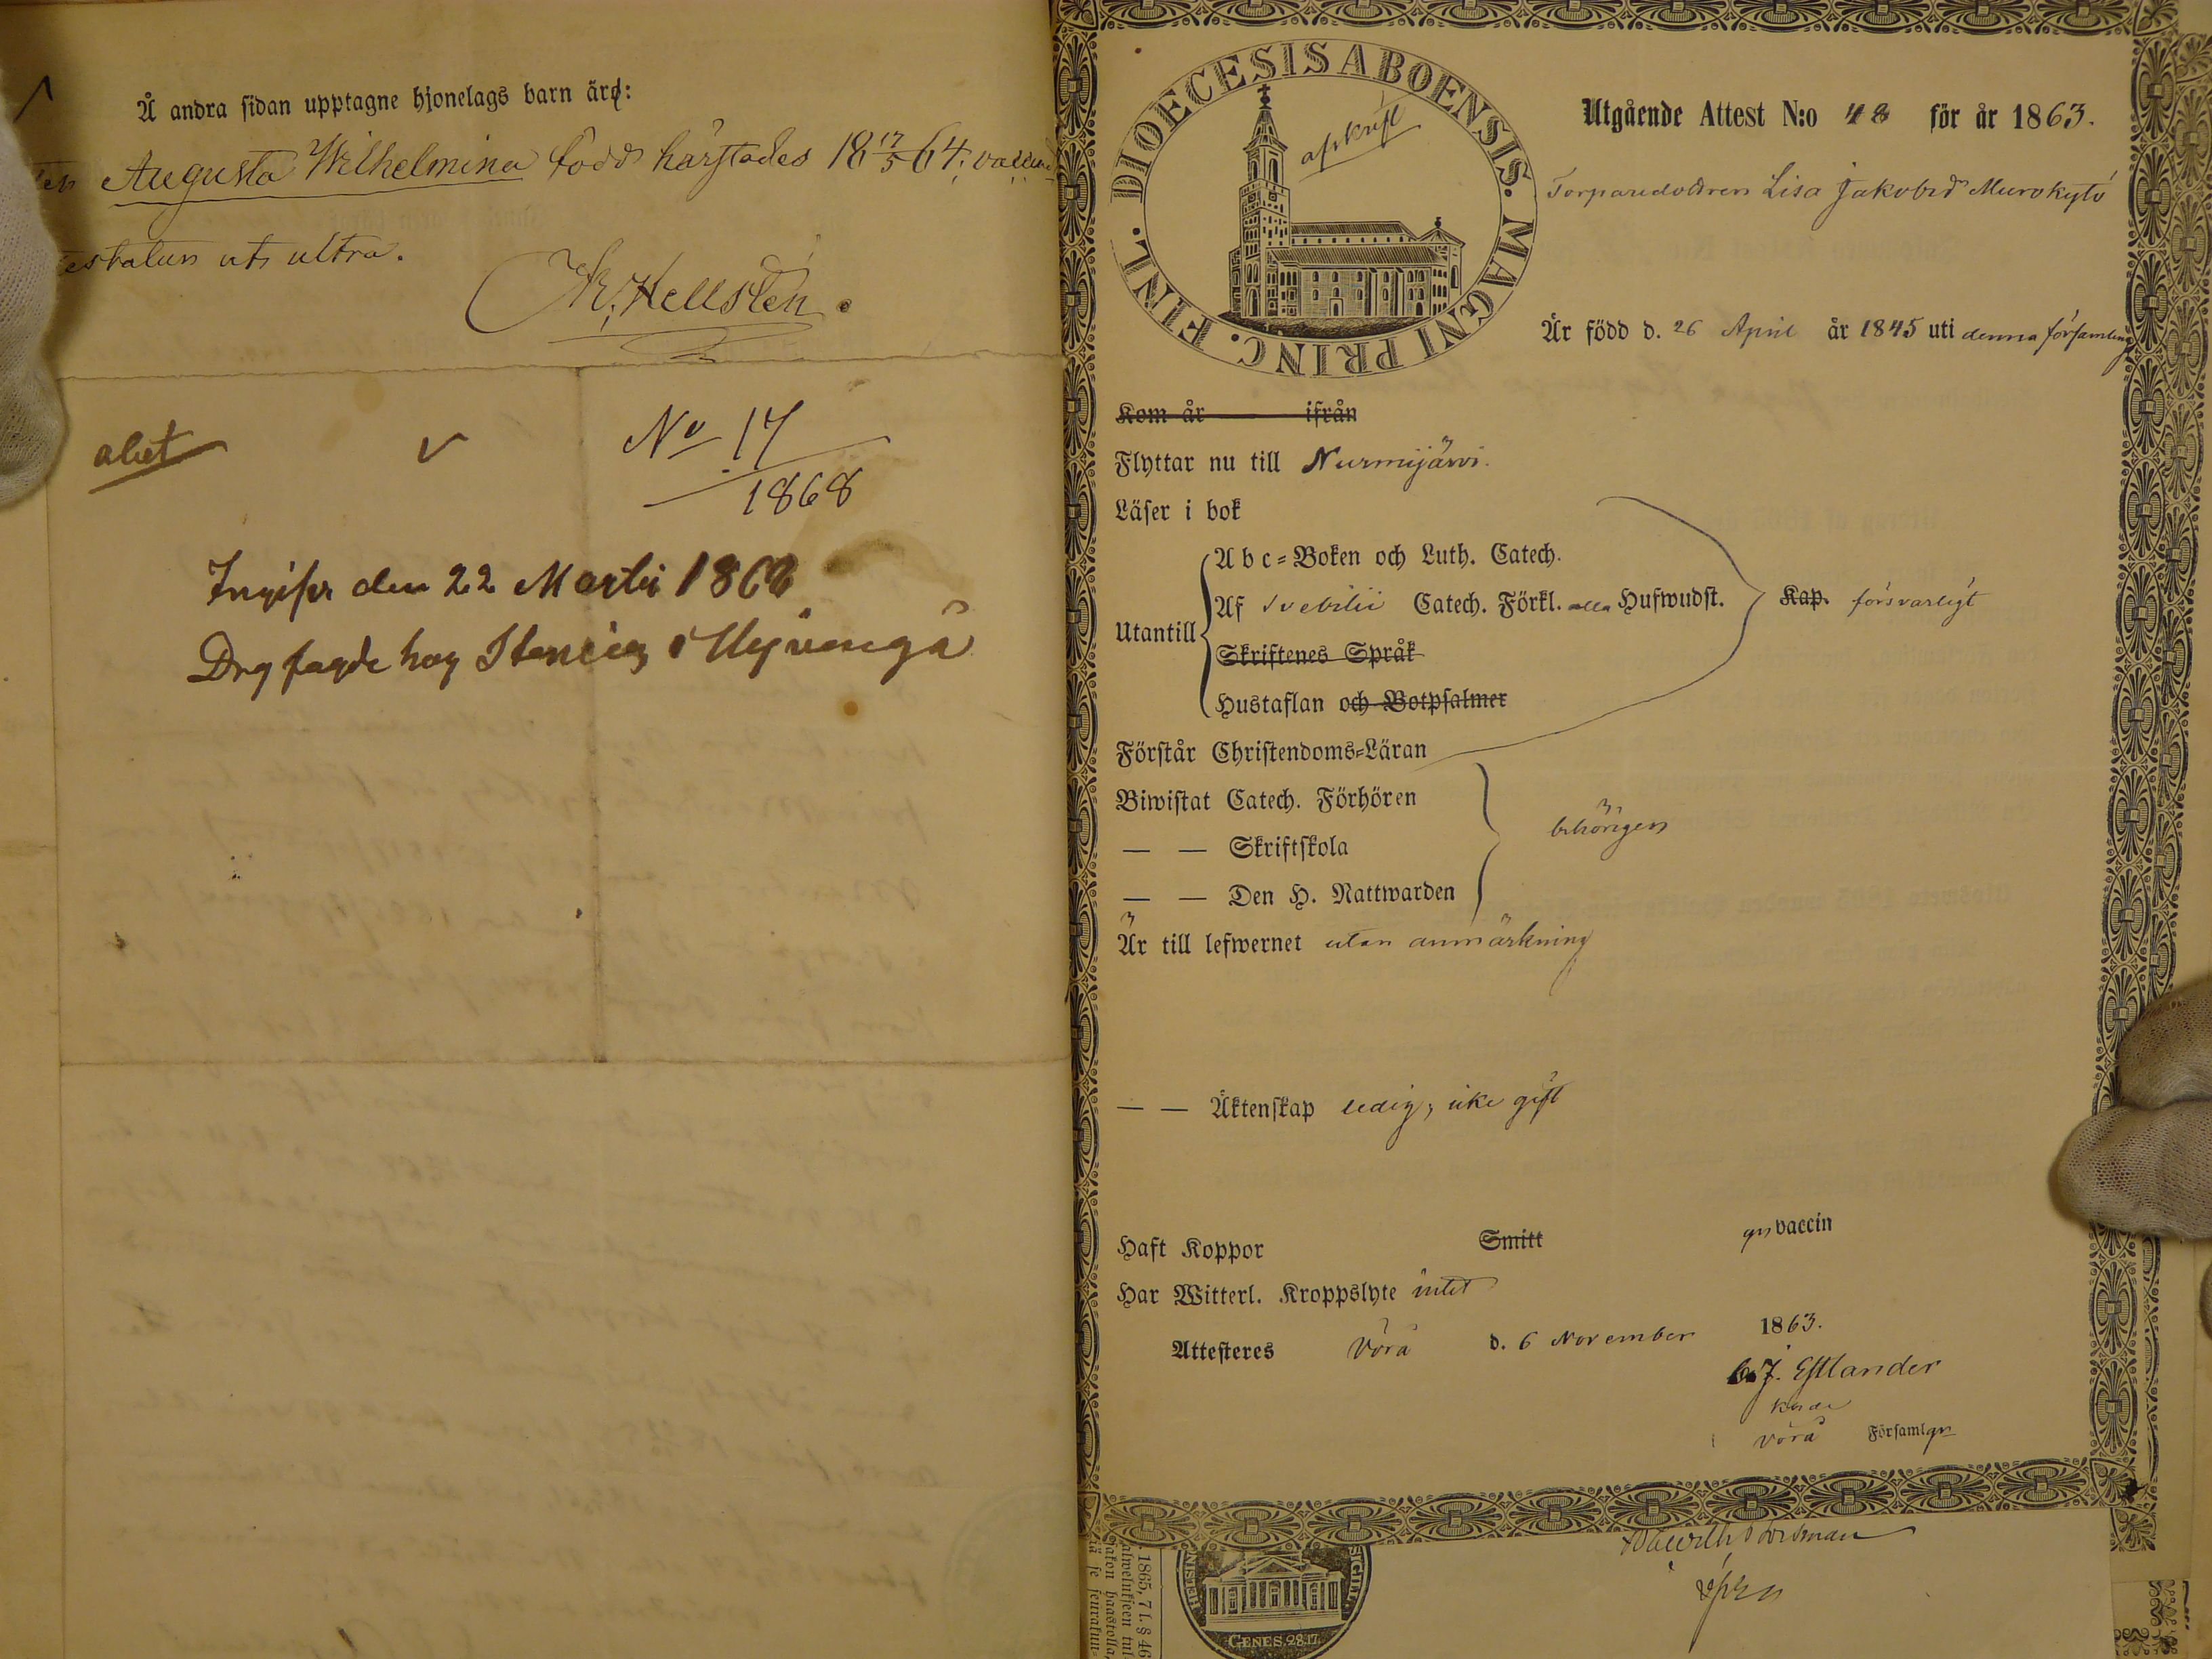 Å andra sidan upptagne hjonelags barn äro:
Augusta Wilhelmina född härstädes 18 17/5 64; vaccine
testatur ut ultra.
K. Hellstén.
abet
No 17
1868
den 22 Martii 1868
hoy i Hyvinge
DIOECESIS ABOENSIS. MAGNI PRINC. FINL.
afskrift
Utgående Attest N:o 48 för år 1863.
Torparedottren Lisa Jakobsd Murokytö
Är född d. 26 April år 1845 uti denna församling
Kom år ifrån
Flyttar nu till Nurmijärvi.
Läser i bok
Utantill
Abc=Boken och Luth. Catech.
Af Svebilii Catech. Förkl. alla Hufwudst.
Skriftenes Språk
Hustaflan och Botpsalmer
Kap. försvarligt
Förstår Christendoms=Läran
Biwistat Catech. Förhören
— — Skriftskola
— — Den H. Nattwarden
behörigen
Är till lefwernet utan anmärkning
— — Äktenskap ledig, icke gift
Haft Koppor Smitt gn vaccin
Har Witterl. Kroppslyte intet
Attesteres Vörå d. 6 November 1863.
Estlander
Vörå Församlgn
1865, 7 l. § 46
GENES. 28.17.